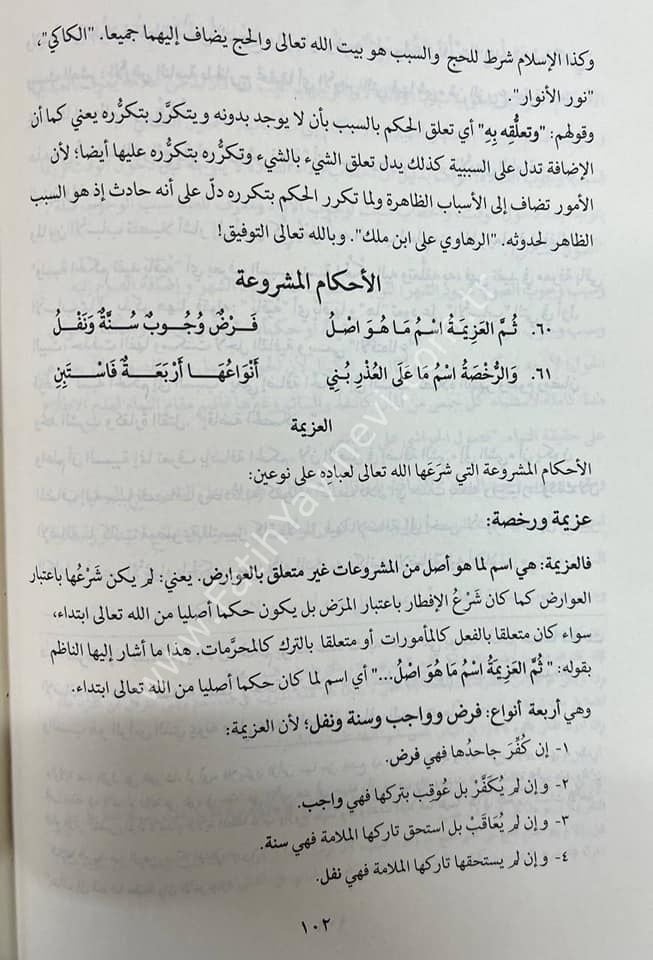 وكذا الإسلام شرط للحج والسبب هو بيت الله تعالى والحج يضاف إليهما جميعا. "الكاكي"،
"نور الأنوار".
وقولهم: "وتعلُّقِه بِهِ" أي تعلق الحكم بالسبب بأن لا يوجد بدونه ويتكرَّر بتكرُّره يعني كما أن
الإضافة تدل على السببية كذلك يدل تعلق الشيء بالشيء وتكرُّره بتكرُّره عليها أيضا؛ لأن
الأمور تضاف إلى الأسباب الظاهرة ولما تكرر الحكم بتكرره دلّ على أنه حادث إذ هو السبب
الظاهر لحدوثه. "الرهاوي على ابن ملك". وبالله تعالى التوفيق!
الأحكام المشروعة
٦٠. ثُمَّ العَزِيمَةُ اسْمُ مَا هُوَ اصْلُ فَرْضٌ وُجُوبٌ سُنَّةٌ وَنَفْلُ
٦١. وَالرُّخْصَةُ اسْمُ مَا عَلَى العُذْرِ بُنِي أَنْوَاعُهَا أَرْبَعَةٌ فَاسْتَبِنِ
العزيمة
الأحكام المشروعة التي شرَعَها الله تعالى لعباده على نوعين:
عزيمة ورخصة:
فالعزيمة: هي اسم لما هو أصل من المشروعات غير متعلق بالعوارض. يعني: لم يكن شَرْعُها باعتبار
العوارض كما كان شَرْعُ الإفطار باعتبار المرَض بل يكون حكما أصليا من الله تعالى ابتداء،
سواء كان متعلقا بالفعل كالمأمورات أو متعلقا بالترك كالمحرَّمات. هذا ما أشار إليها الناظم
بقوله: " ثُمَّ العَزِيمَةُ اسْمُ مَا هُوَ اصْلُ..." أي اسم لما كان حكما أصليا من الله تعالى ابتداء.
وهي أربعة أنواع: فرض وواجب وسنة ونفل؛ لأن العزيمة:
١- إن كُفِّرَ جاحدُها فهي فرض.
٢- وإن لم يُكَفَّرْ بل عُوقِبَ بتركها فهي واجب.
٣- وإن لم يُعاقَبْ بل استحق تاركها الملامة فهي سنة.
٤- وإن لم يستحقها تاركها الملامة فهي نفل.
١٠٢
www.FatihYayinevi.com.tr